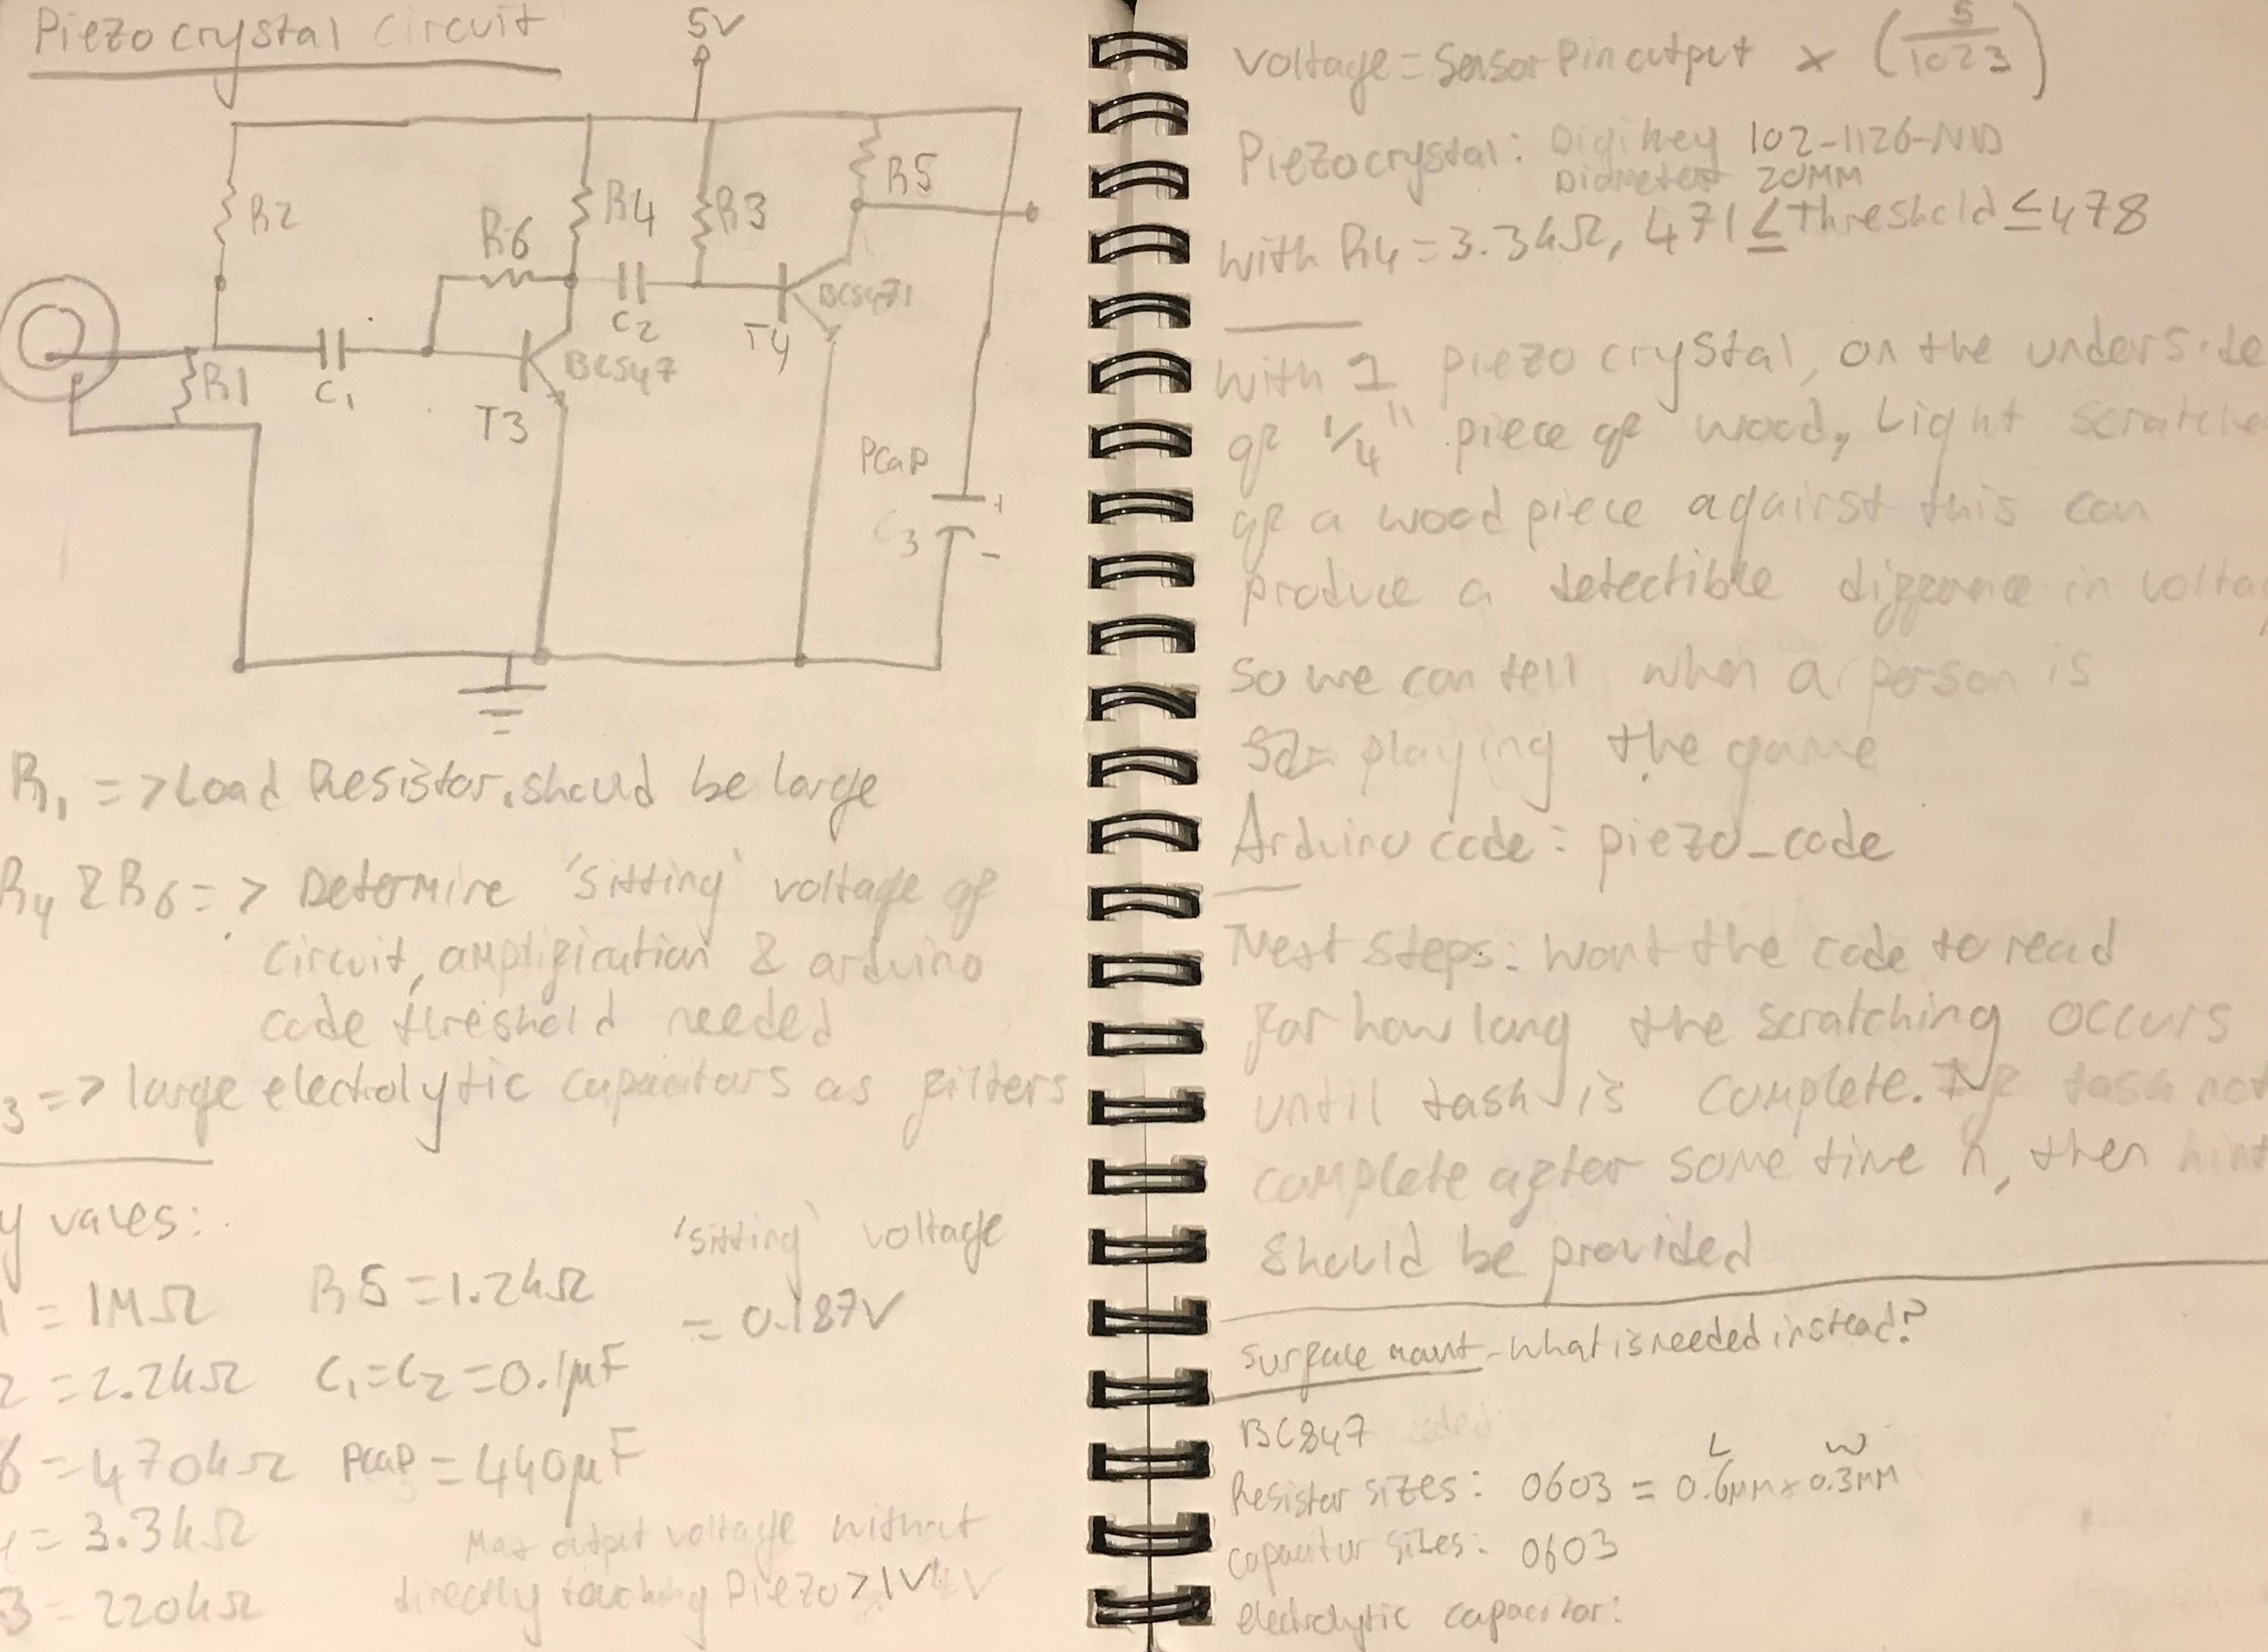 Piezo crystal circuit
5V
R2
R6
R4
R3
R5
R1
C1
C2
T3
BC547
T4
BC5471
PCap
C3
+
-
R1 => Load Resistor, should be large
R4 & R6 => Determine 'sitting' voltage of
circuit, amplification & arduino
code threshold needed
3 => large electrolytic capacitors as filters
y vales:
'sitting' voltage
= 0.187V
1 = 1MΩ R5 = 1.2kΩ
2 = 2.2kΩ C1 = C2 = 0.1μF
6 = 470kΩ PCap = 440μF
4 = 3.3kΩ
3 = 220kΩ
Max output voltage without
directly touching Piezo > 1V
Voltage = Sensor Pin output × (5/1023)
Piezo crystal: Digikey 102-1126-ND
Diameter 20MM
With R4 = 3.3kΩ, 471 ≤ threshold ≤ 478
With 1 piezo crystal, on the underside
of 1/4" piece of wood, Light scratche
of a wood piece against this can
produce a detectible diffrence in voltag
so we can tell when a person is
playing the game
Arduino code: piezo_code
Next steps: Want the code to read
for how long the scratching occurs
until task is complete. If task not
complete after some time n, then hint
should be provided
Surface mount - what is needed instead?
BC847
L W
Resistor sizes: 0603 = 0.6mm × 0.3mm
capacitor sizes: 0603
electrolytic capacitor: